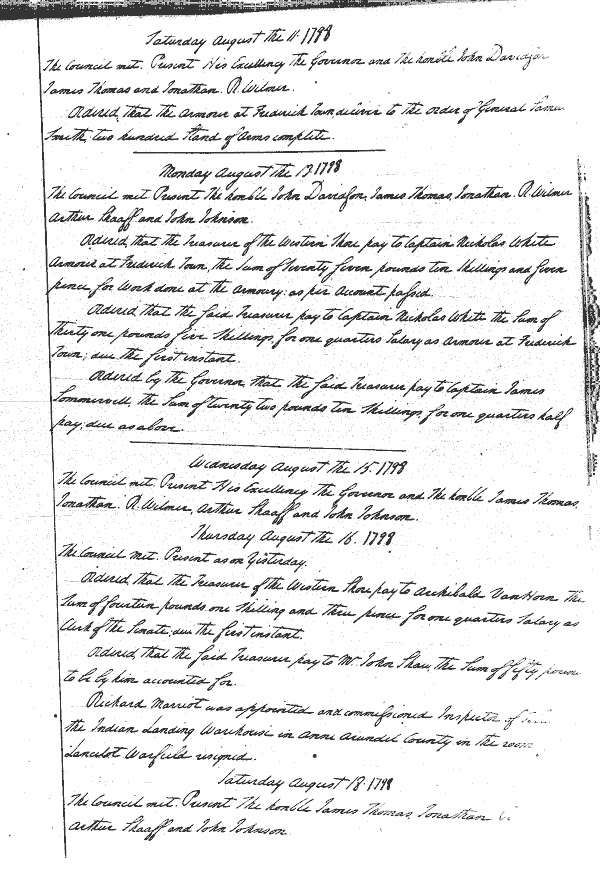 Saturday August the 11. 1798
The Council met. Present His Excellency the Governor and the honble John Davidson
James Thomas and Jonathan R. Wilmer.
Ordered, that the Armour at Frederick Town deliver to the order of General
Smith, two hundred Stand of Arms complete.
Monday August the 13. 1798
The Council met. Present the honble John Davidson, James Thomas, Jonathan R. Wilmer
Arthur Shaaff and John Johnson.
Ordered, that the Treasurer of the Western Shore pay to Captain Nicholas White
Armour at Frederick Town, the Sum of Seventy Seven pounds ten Shillings and Seven
pence for Work done at the Armoury as per Account passed.
Ordered that the said Treasurer pay to Captain Nicholas White the Sum of
thirty one pounds five Shillings, for one quarters Salary as Armour at Frederick
Town, due the first instant.
Ordered by the Governor that the said Treasurer pay to Captain James
Sommervell, the Sum of twenty two pounds ten Shillings, for one quarters half
pay, due as above.
Wednesday August the 15. 1798
The Council met. Present His Excellency the Governor and the honble James Thomas,
Jonathan R. Wilmer, Arthur Shaaff and John Johnson.
Thursday August the 16. 1798
The Council met. Present as on Yisterday.
Ordered, that the Treasurer of the Western Shore pay to Archibald VanHorn the
Sum of fourteen pounds one Shilling and three pence for one quarters Salary as
Clerk of the Senate, due the first instant.
Ordered, that the said Treasurer pay to Mr. John Shaw, the Sum of fifty
to be by him accounted for.
Richard Marriot was appointed and commissioned Inspector of
the Indian Landing Warehouse in Anne Arundel County in the room
Lancelot Warfield resigned.
Saturday August 18. 1798
The Council met. Present the honble James Thomas, Jonathan
Arthur Shaaff and John Johnson.